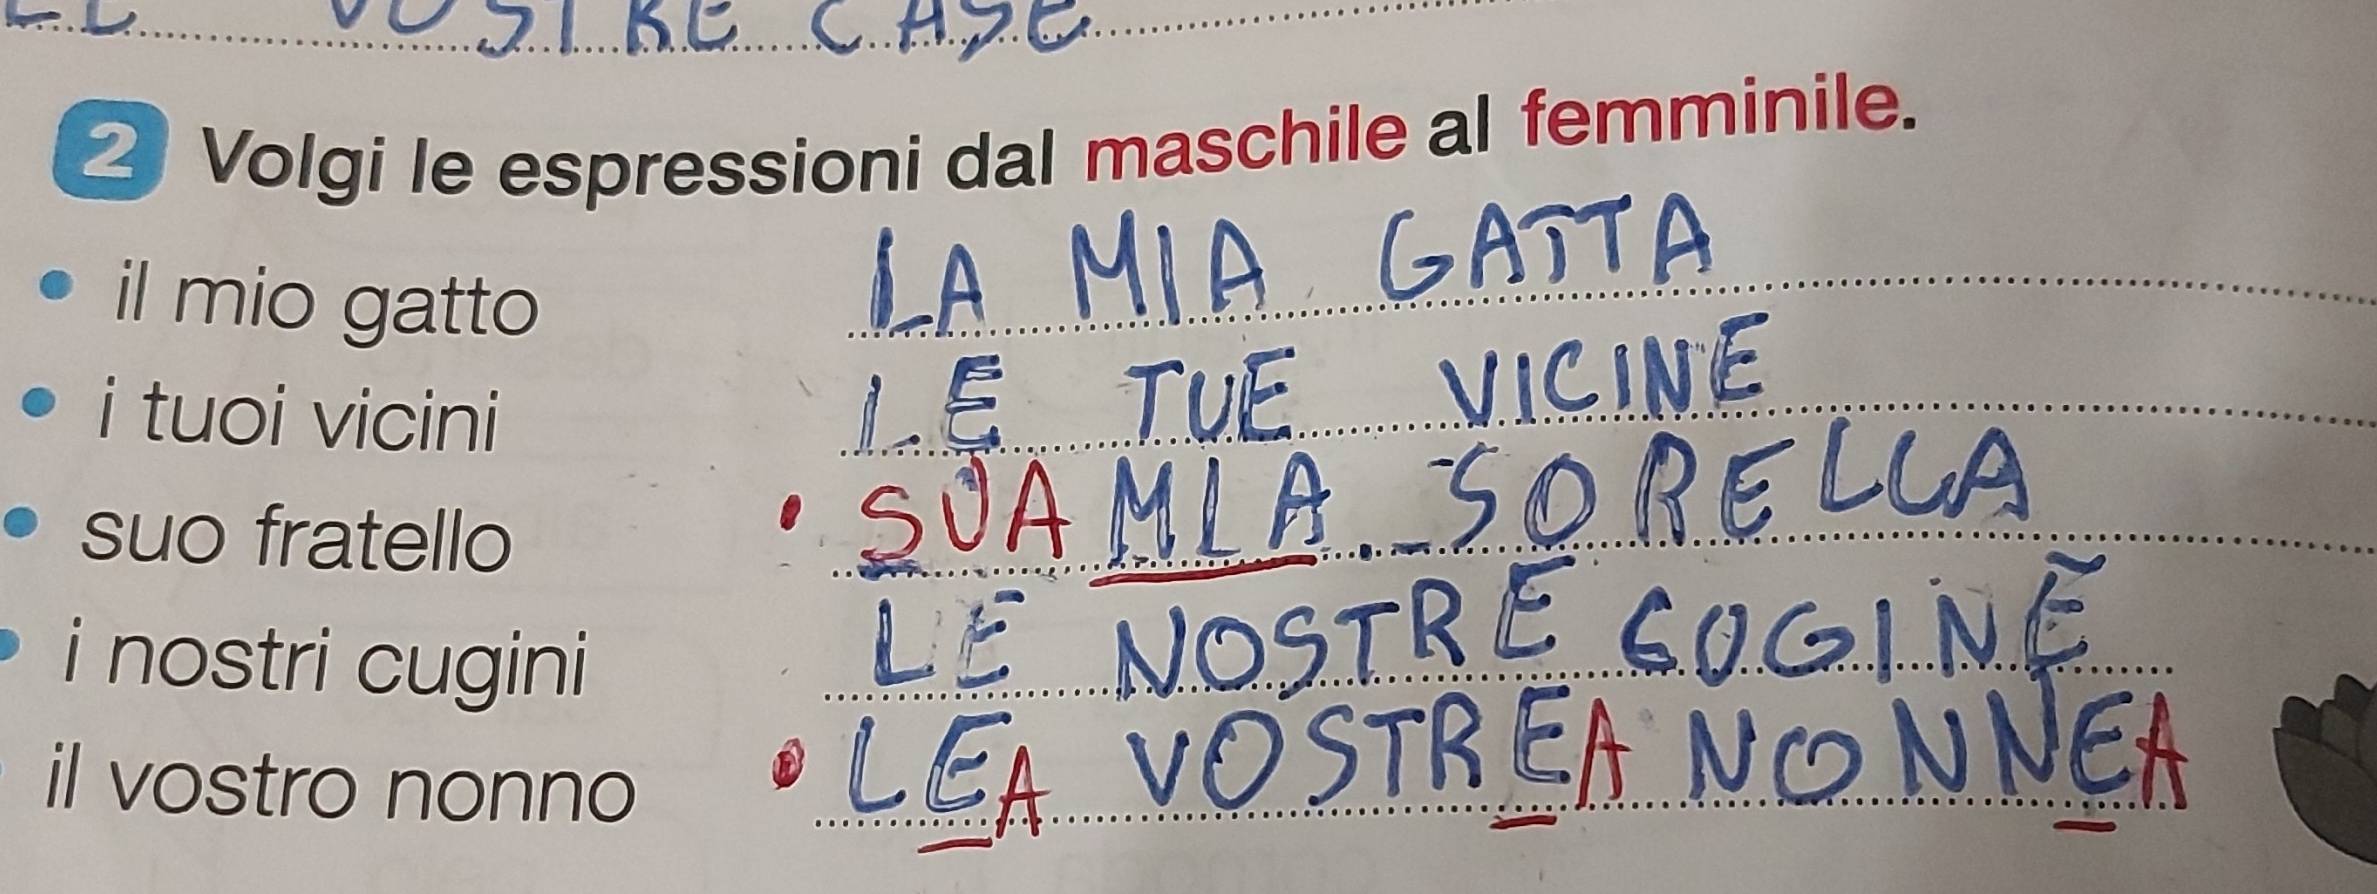 VOSTRE CASE
2 Volgi le espressioni dal maschile al femminile.
• il mio gatto LA MIA GATTA
• i tuoi vicini LE TUE VICINE
• suo fratello • SUA MIA SORELLA
• i nostri cugini LE NOSTRE CUGINE
il vostro nonno • LEA VOSTREA NONNEA